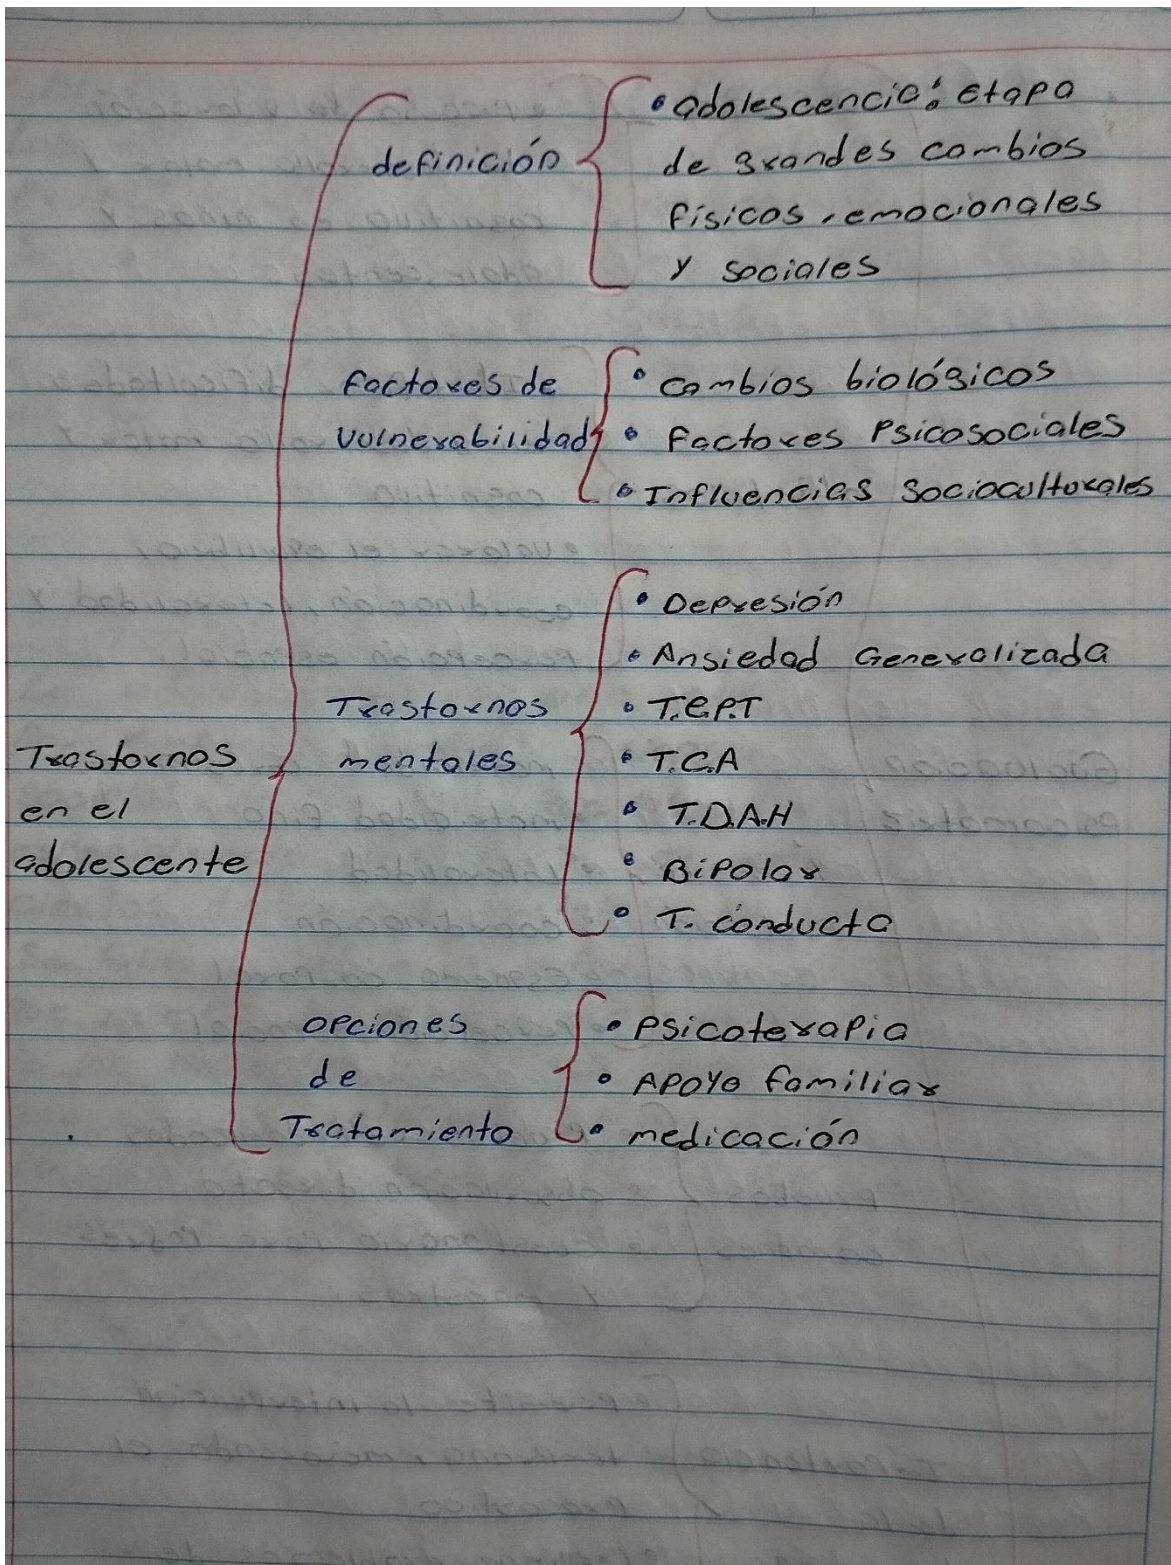 definición
• adolescencia: etapa
de grandes cambios
físicos, emocionales
y sociales
factores de
vulnerabilidad
• cambios biológicos
• factores psicosociales
• Influencias socioculturales
Trastornos
en el
adolescente
Trastornos
mentales
• Depresión
• Ansiedad Generalizada
• T.E.P.T
• T.C.A
• T.D.A.H
• Bipolar
• T. conducta
opciones
de
Tratamiento
• psicoterapia
• Apoyo familiar
• medicación